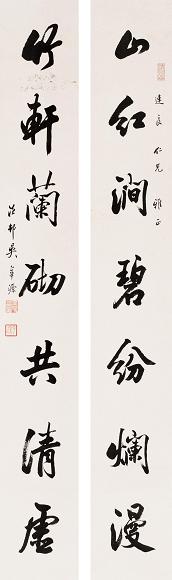 山紅澗碧紛爛漫
達良仁兄雅正
竹軒蘭砌共清虛
吳華源